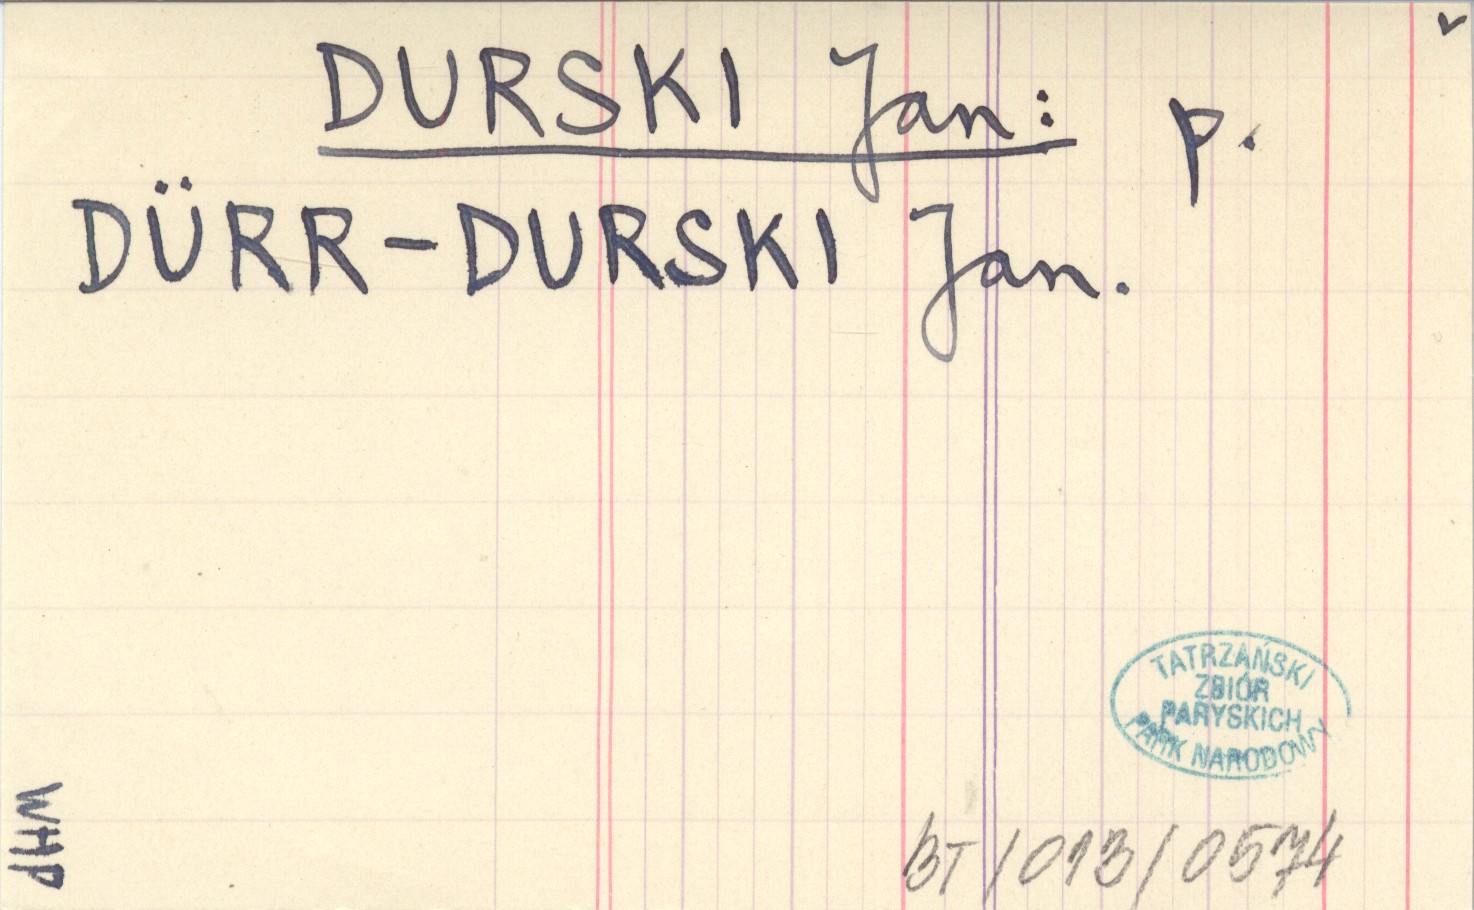 DURSKI Jan: p.
DÜRR-DURSKI Jan.
TATRZAŃSKI
ZBIÓR
PARYSKICH
PARK NARODOWY
WHP
BT/013/0574